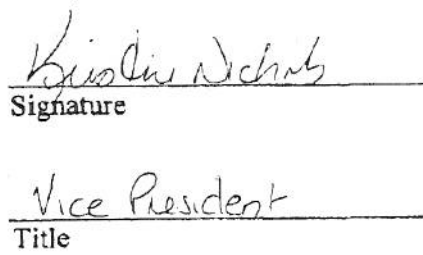 Kristin Nichols
Signature
Vice President
Title